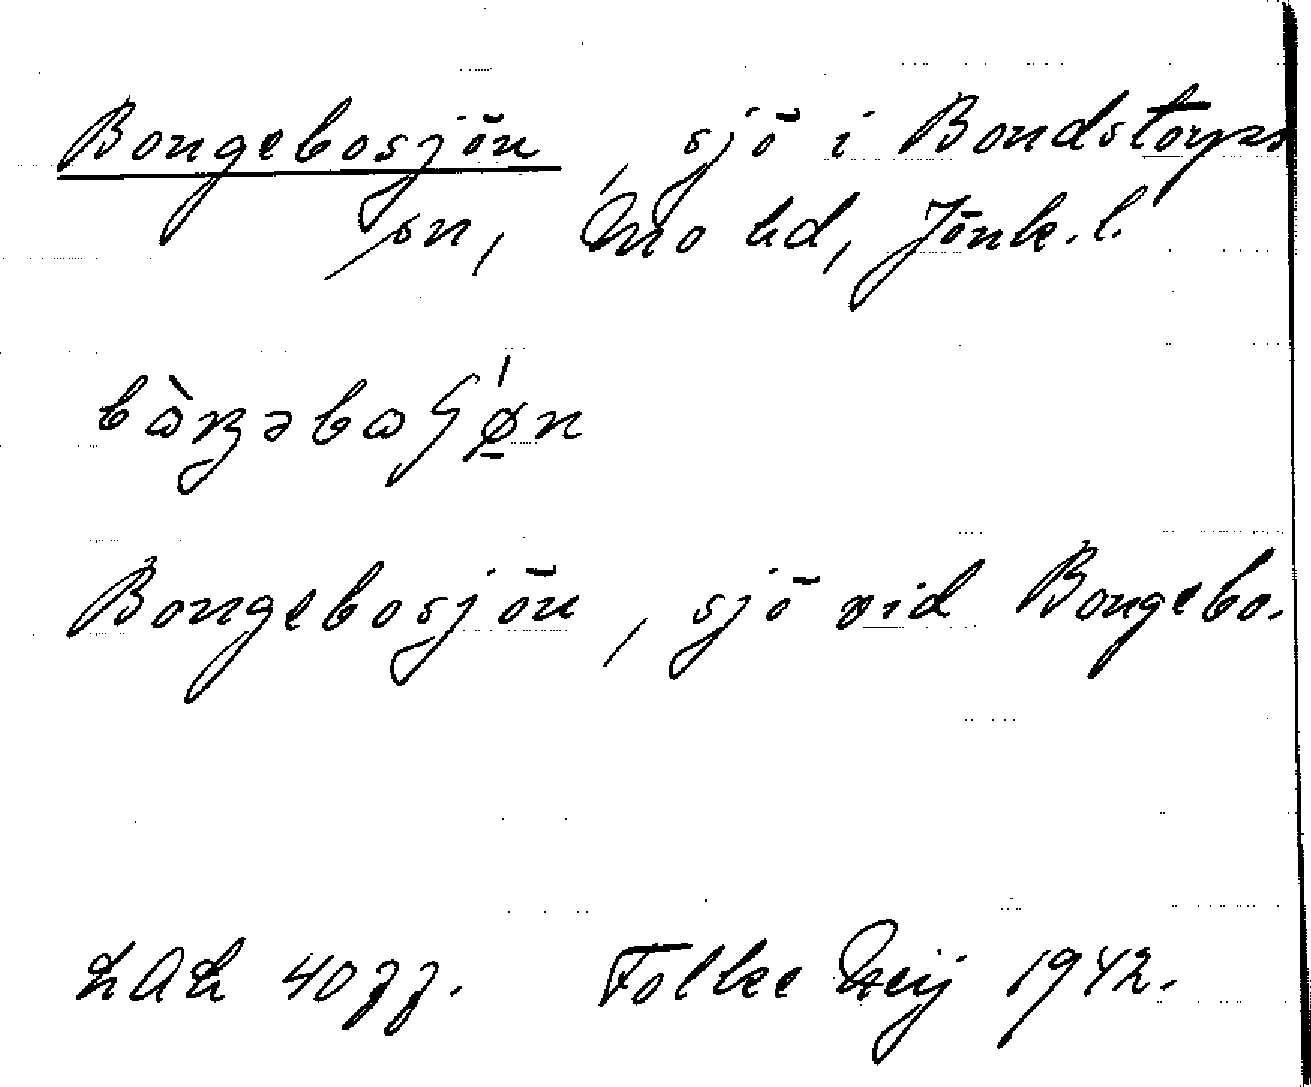 Bongebosjön, sjö i Bondstorps
sn, Mo hd, Jönk. l.
Bongebosjön, sjö vid Bongebo.
LAL 4077. Folke 1942.